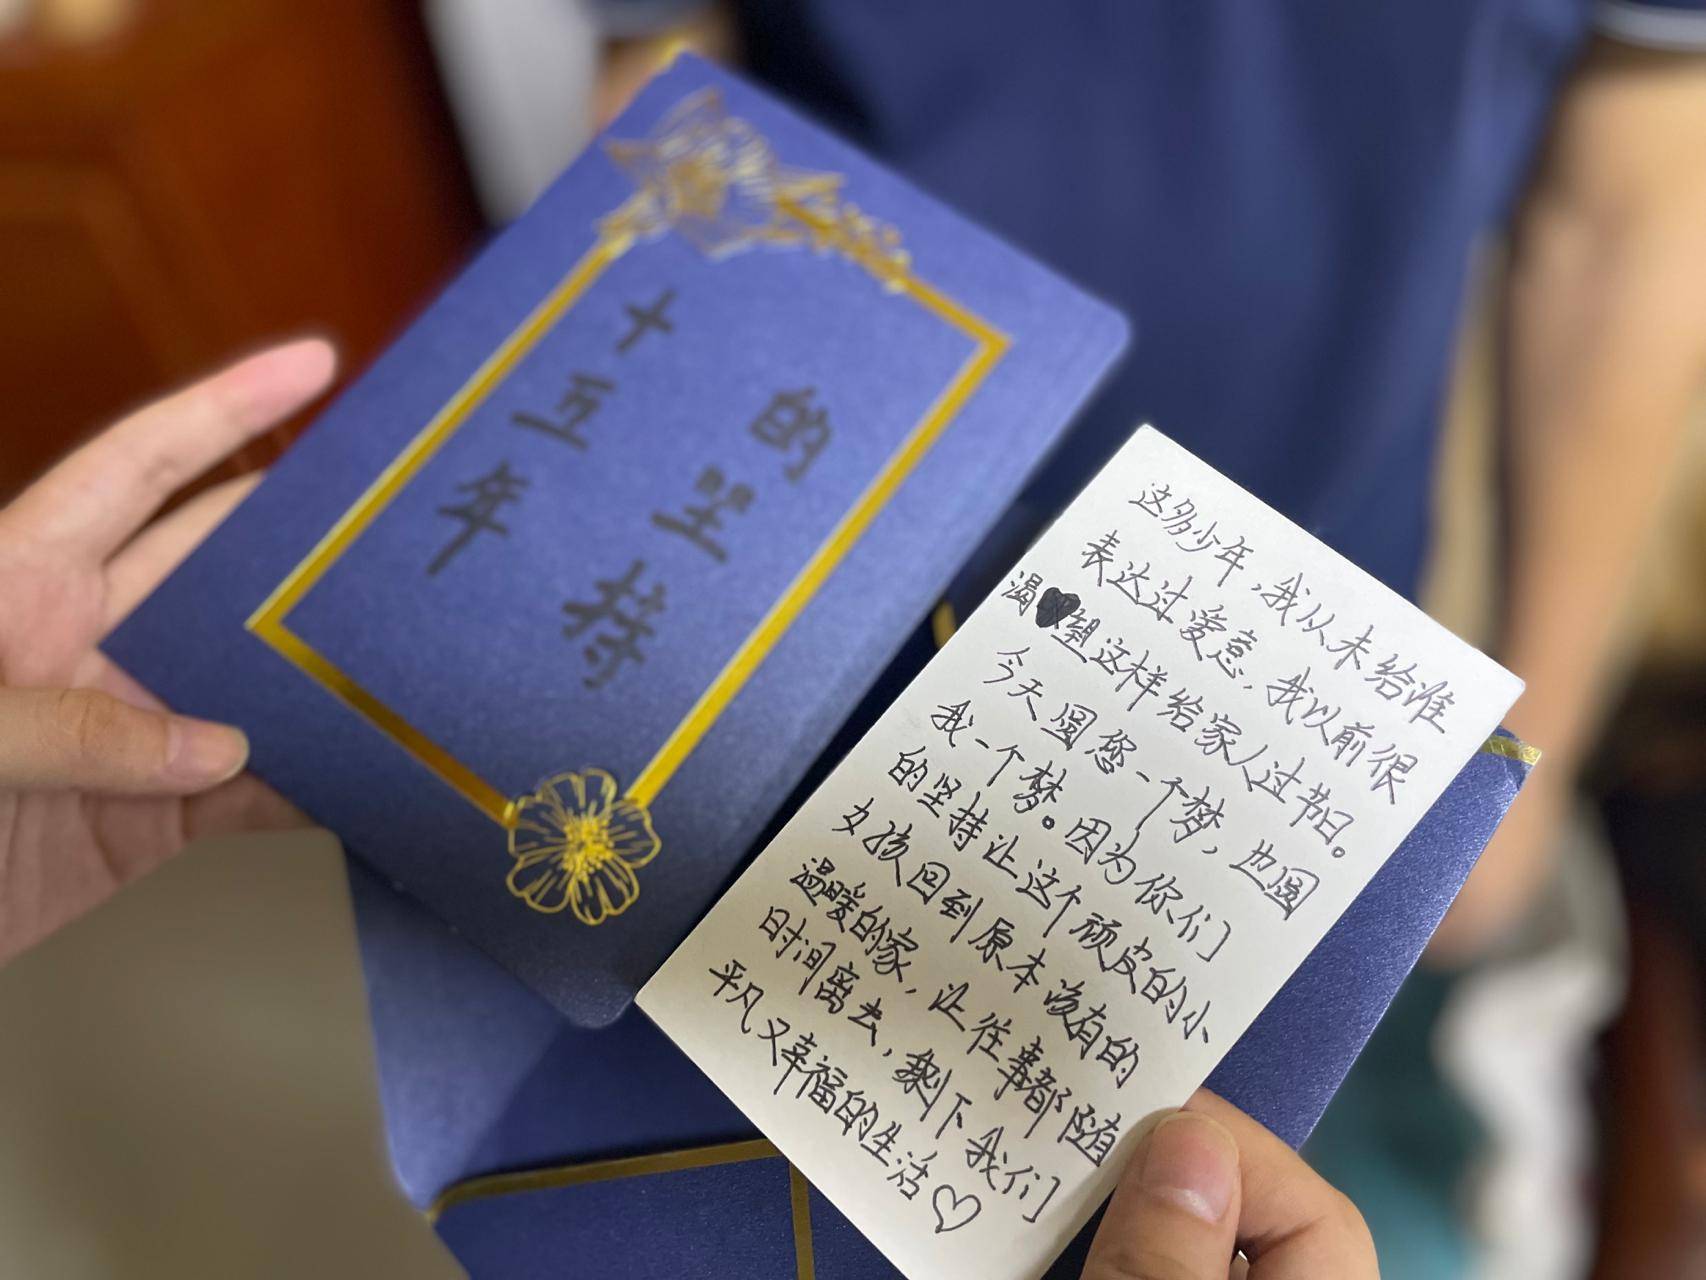 十五年
的坚持
这多少年，我从未给谁
表达过爱意，我以前很
渴望这样给家人过节日。
今天圆您一个梦，也圆
我一个梦。因为你们
的坚持让这个顽皮的小
女孩回到原本该有的
温暖的家，让往事都随
时间离去，剩下我们
平凡又幸福的生活♡